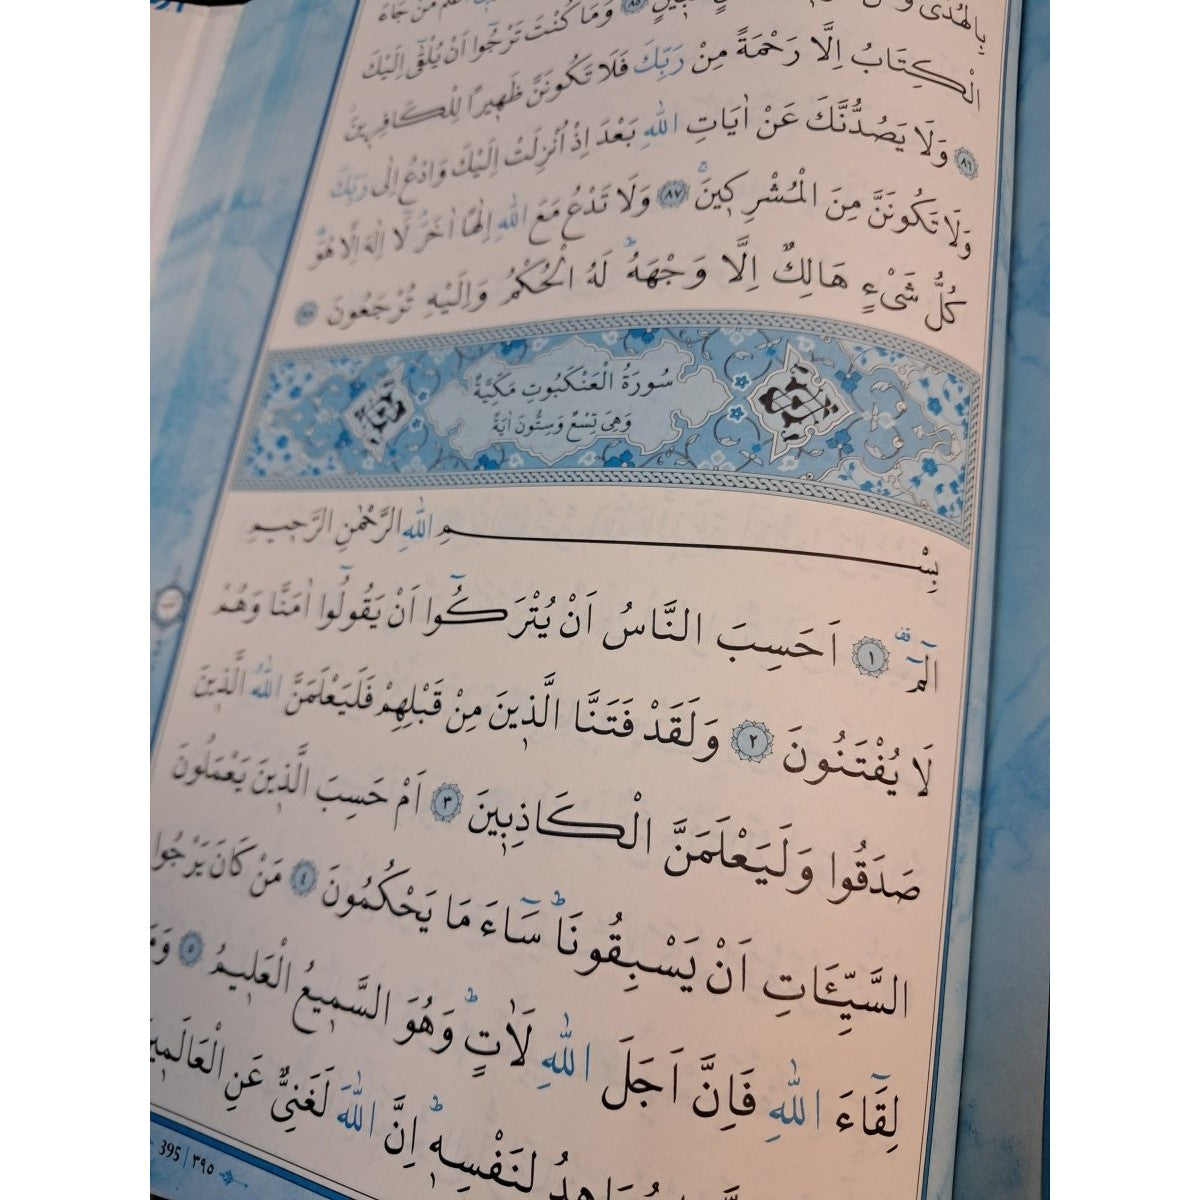 بِالْهُدٰى
مَنْ جَاءَ
الْكِتَابُ اِلَّا رَحْمَةً مِنْ رَبِّكَ فَلَا تَكُونَنَّ ظَهِيرًا لِلْكَافِرِينَ وَمَا كُنْتَ تَرْجُوا اَنْ يُلْقٰى اِلَيْكَ
﴿٨٦﴾ وَلَا يَصُدُّنَّكَ عَنْ اٰيَاتِ اللّٰهِ بَعْدَ اِذْ اُنْزِلَتْ اِلَيْكَ وَادْعُ اِلٰى رَبِّكَ
وَلَا تَكُونَنَّ مِنَ الْمُشْرِكِينَۚ ﴿٨٧﴾ وَلَا تَدْعُ مَعَ اللّٰهِ اِلٰهًا اٰخَرَۢ لَٓا اِلٰهَ اِلَّا هُوَ۠
كُلُّ شَيْءٍ هَالِكٌ اِلَّا وَجْهَهُۜ لَهُ الْحُكْمُ وَاِلَيْهِ تُرْجَعُونَ ﴿٨٨﴾
سُورَةُ الْعَنْكَبُوتِ مَكِّيَّةٌ
وَهِيَ تِسْعٌ وَسِتُّونَ اٰيَةً
بِسْمِ اللّٰهِ الرَّحْمٰنِ الرَّحِيمِ
الٓمٓ ﴿١﴾ اَحَسِبَ النَّاسُ اَنْ يُتْرَكُٓوا اَنْ يَقُولُٓوا اٰمَنَّا وَهُمْ
لَا يُفْتَنُونَ ﴿٢﴾ وَلَقَدْ فَتَنَّا الَّذِينَ مِنْ قَبْلِهِمْ فَلَيَعْلَمَنَّ اللّٰهُ الَّذِينَ
صَدَقُوا وَلَيَعْلَمَنَّ الْكَاذِبِينَ ﴿٣﴾ اَمْ حَسِبَ الَّذِينَ يَعْمَلُونَ
السَّيِّـَٔاتِ اَنْ يَسْبِقُونَاۜ سَٓاءَ مَا يَحْكُمُونَ ﴿٤﴾ مَنْ كَانَ يَرْجُوا
لِقَٓاءَ اللّٰهِ فَاِنَّ اَجَلَ اللّٰهِ لَاٰتٍۜ وَهُوَ السَّمِيعُ الْعَلِيمُ ﴿٥﴾
لِنَفْسِهِۜ اِنَّ اللّٰهَ لَغَنِيٌّ عَنِ الْعَالَمِينَ
395 | ٣٩٥